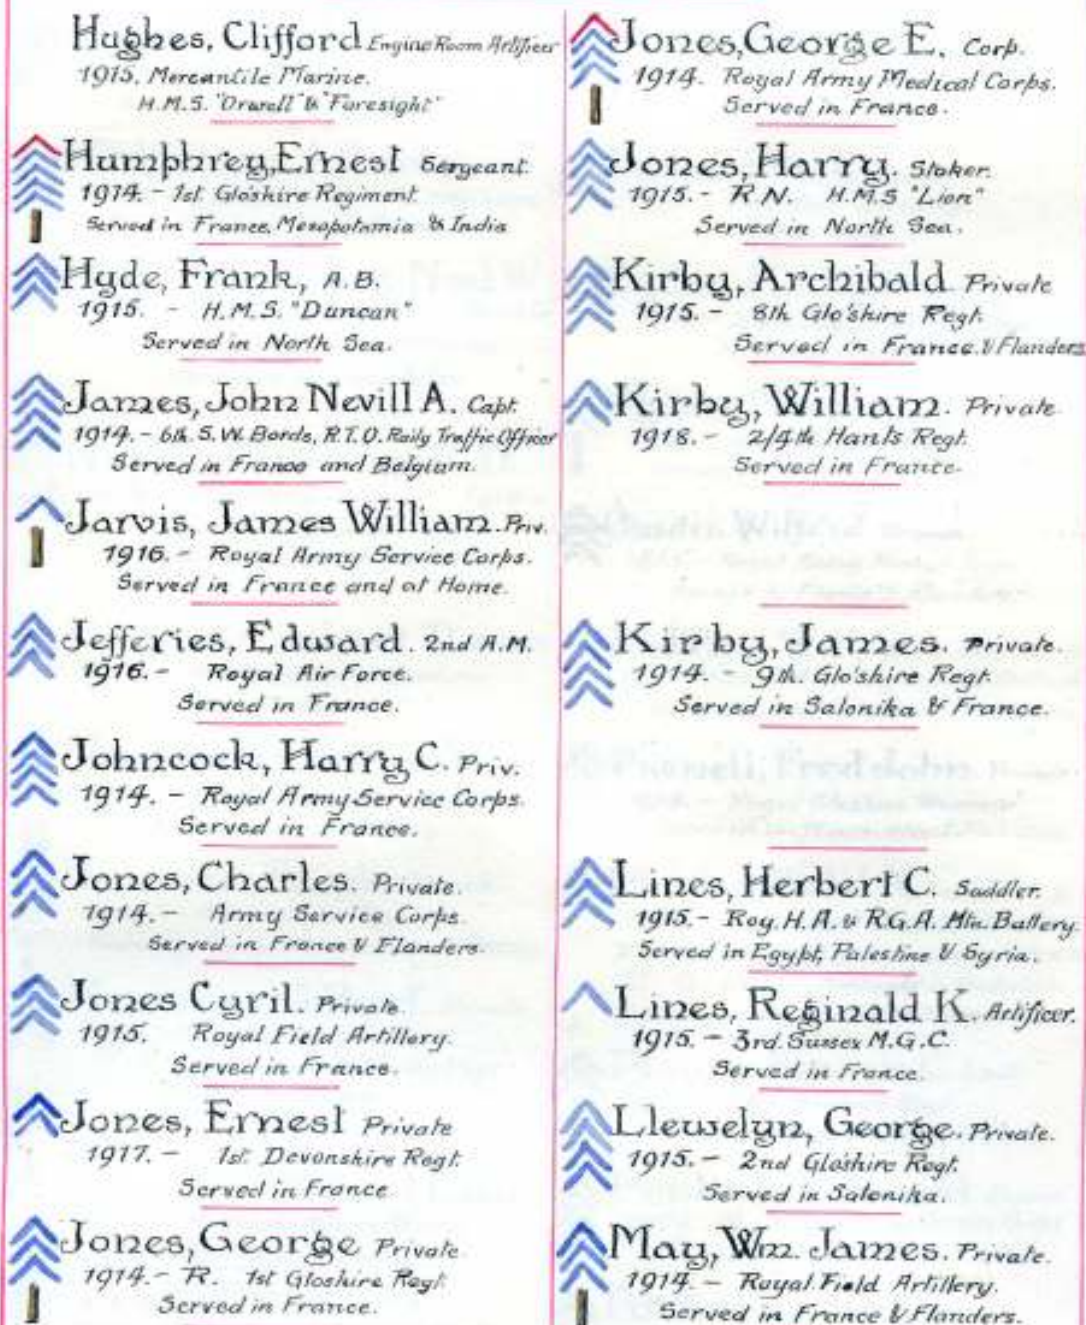 Hughes, Clifford Engine Room Artificer
1915. Mercantile Marine.
H.M.S. "Orwell" & "Foresight"
Humphrey, Ernest Sergeant.
1914. - 1st. Glo'shire Regiment.
Served in France, Mesopotamia & India
Hyde, Frank, A.B.
1915. - H.M.S. "Duncan"
Served in North Sea.
James, John Nevill A. Capt.
1914. - 6th. S.W. Bords, R.T.O. Raily Traffic Officer
Served in France and Belgium.
Jarvis, James William. Priv.
1916. - Royal Army Service Corps.
Served in France and at Home.
Jefferies, Edward. 2nd A.M.
1916. - Royal Air Force.
Served in France.
Johncock, Harry C. Priv.
1914. - Royal Army Service Corps.
Served in France.
Jones, Charles. Private.
1914. - Army Service Corps.
Served in France & Flanders.
Jones Cyril. Private.
1915. Royal Field Artillery.
Served in France.
Jones, Ernest Private
1917. - 1st. Devonshire Regt.
Served in France
Jones, George Private.
1914. - R. 1st Gloshire Regt.
Served in France.
Jones, George E. Corp.
1914. Royal Army Medical Corps.
Served in France.
Jones, Harry. Stoker.
1915. - R.N. H.M.S "Lion"
Served in North Sea.
Kirby, Archibald Private
1915. - 8th Glo'shire Regt.
Served in France. & Flanders
Kirby, William. Private.
1918. - 2/4th Hants Regt.
Served in France.
Kirby, James. Private.
1914. - 9th. Glo'shire Regt.
Served in Salonika & France.
Lines, Herbert C. Saddler.
1915. - Roy. H.A. & R.G.A. Mtn. Battery.
Served in Egypt, Palestine & Syria.
Lines, Reginald K. Artificer.
1915. - 3rd. Sussex M.G.C.
Served in France.
Llewelyn, George. Private.
1915. - 2nd Glo'shire Regt.
Served in Salonika.
May, Wm. James. Private.
1914. - Royal Field Artillery.
Served in France & Flanders.